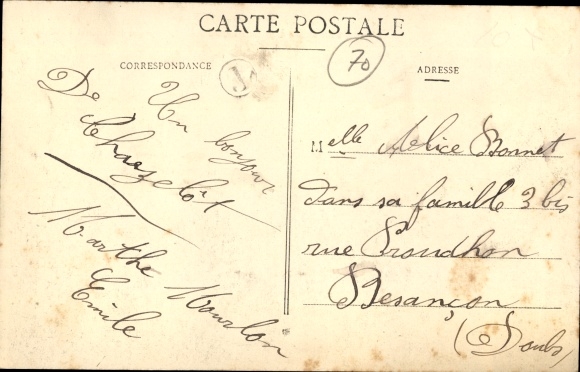 CARTE POSTALE
CORRESPONDANCE
ADRESSE
70
Un bonjour
De Chazelot
Marthe Mourlon
Emile
Melle Alice Bonnet
dans sa famille 3 bis
rue Proudhon
Besançon
(Doubs)